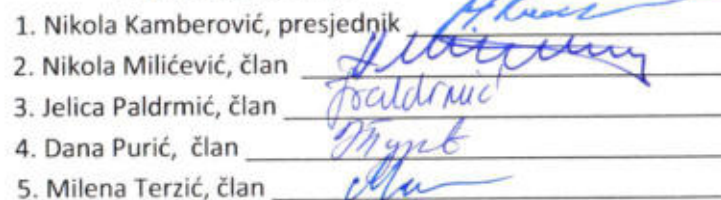 1. Nikola Kamberović, presjednik
2. Nikola Milićević, član
3. Jelica Paldrmić, član Jpaldrmić
4. Dana Purić, član
5. Milena Terzić, član